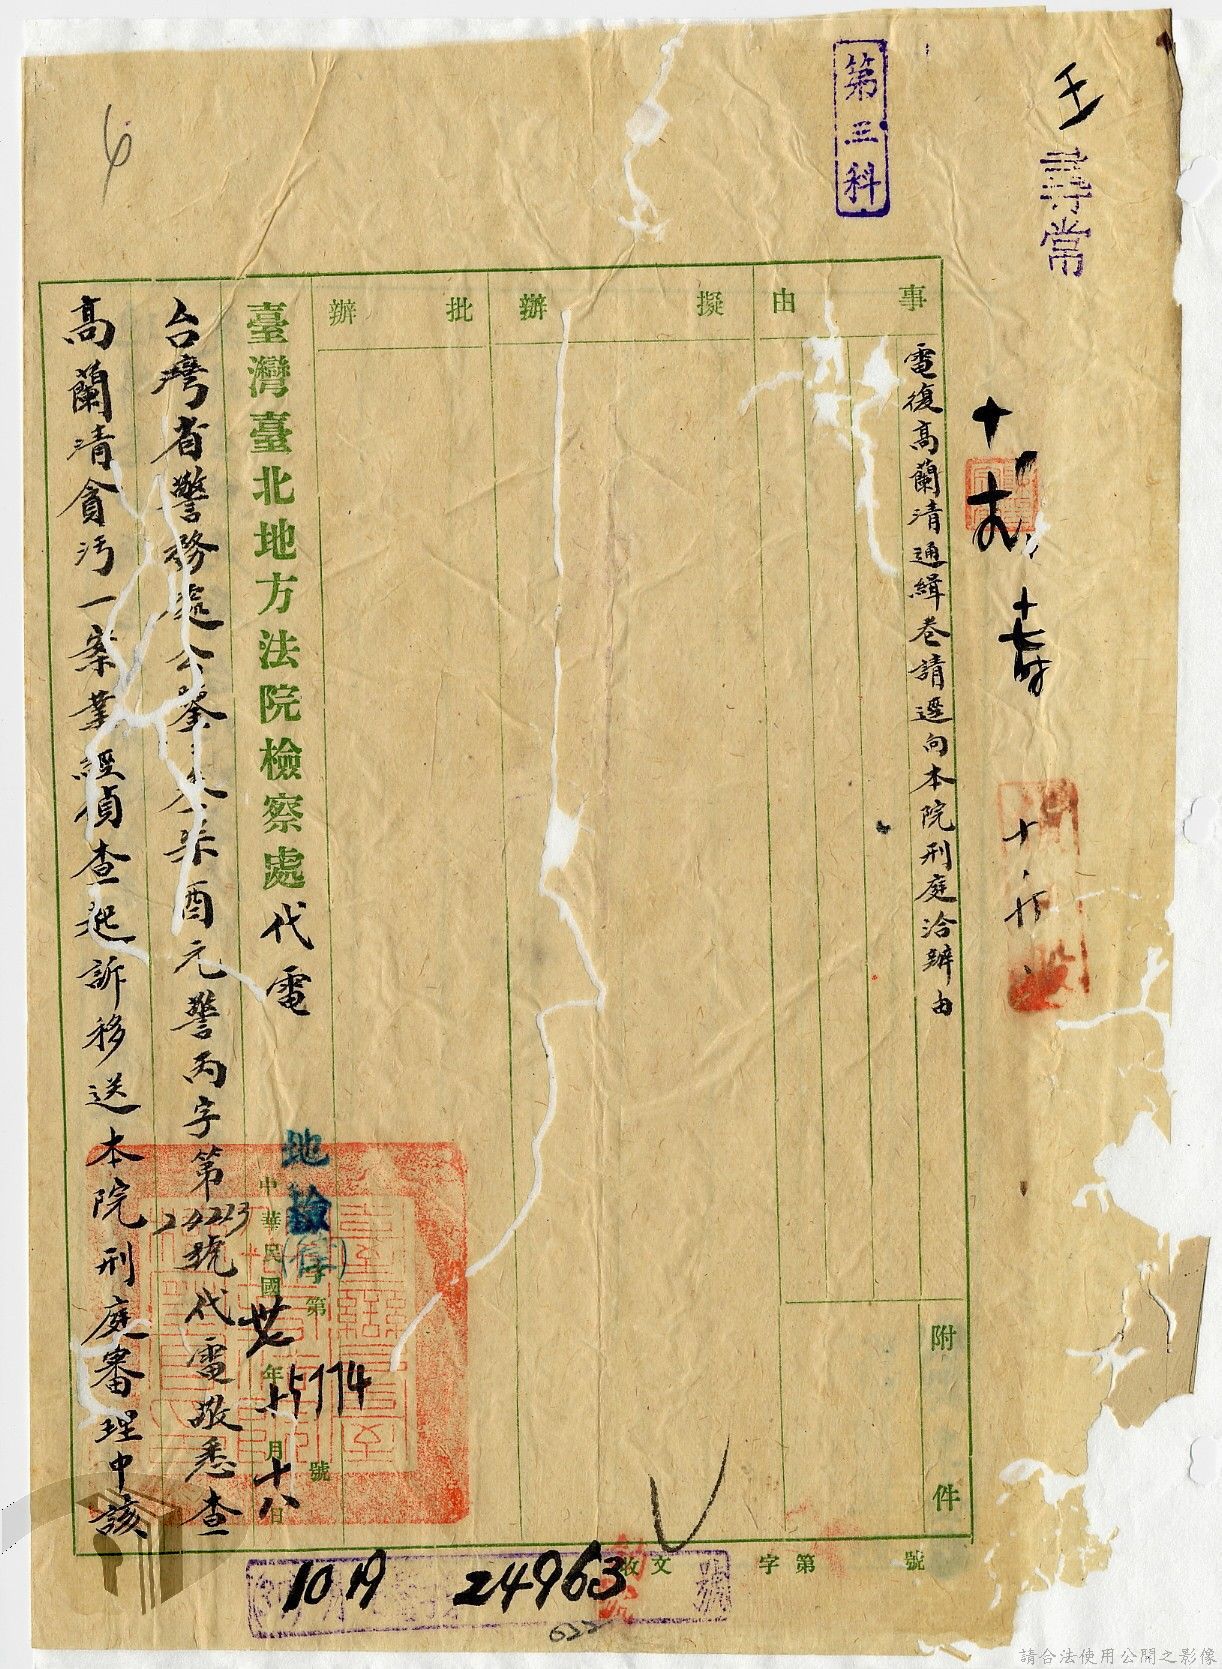 壬
尋常
第三科
事由
電復高蘭清通緝卷請逕向本院刑庭洽辦由
附件
擬辦
批辦
臺灣臺北地方法院檢察處代電
地檢
字第 15114 號
中華民國卅七年十月十八日
台灣省警務處公鑒
酉元警丙字第24223號代電敬悉查
高蘭清貪污一案業經偵查起訴移送本院刑庭審理中該
收文 字第 號
10 19 24963
請合法使用公開之影像